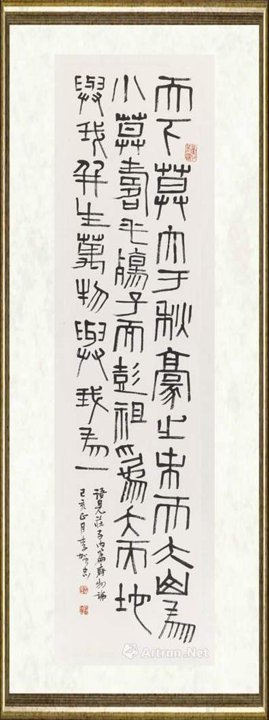 天下莫大于秋豪之末而大山為
小莫壽乎殤子而彭祖為夭天地
與我并生萬物與我為一
語見莊子內篇齊物論
己亥正月
Artron.Net